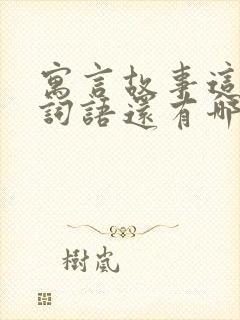 寓言故事這
詞語還有哪
樹嵐